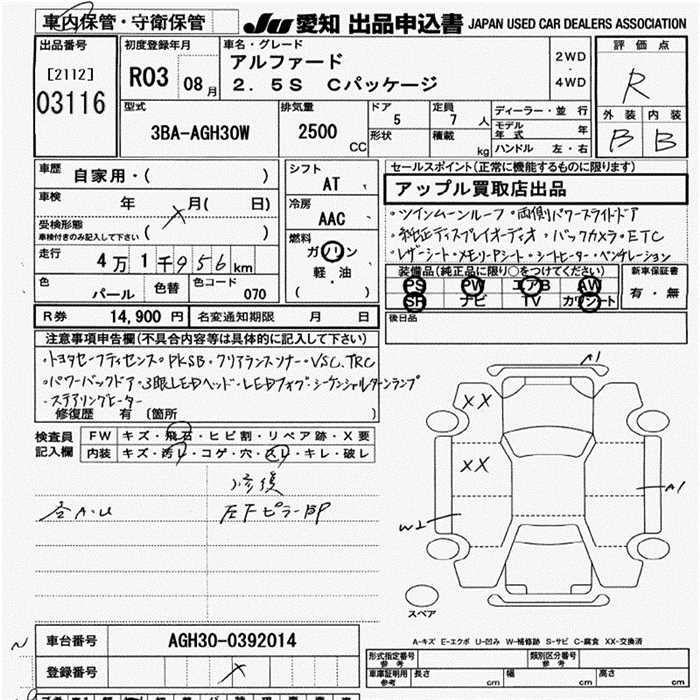 車内保管・守衛保管
JU 愛知 出品申込書 JAPAN USED CAR DEALERS ASSOCIATION
出品番号
[2112]
03116
初度登録年月
R03 08月
車名・グレード
アルファード
2.5S Cパッケージ
2WD
・
4WD
評価点
R
外装 内装
B B
型式
3BA-AGH30W
排気量
2500 CC
ドア 5
形状
定員 7 人
積載 kg
ディーラー・並行
モデル年式 年
ハンドル 左・右
車歴 自家用・( )
車検 年 月( 日)
受検形態
車検付きのみ記入して下さい ( )
走行 4万1千956km
色 パール 色替 色コード 070
シフト AT
冷房 AAC
燃料
ガソリン
軽・油
( )
セールスポイント(正常に機能するものに限ります)
アップル買取店出品
・ツインムーンルーフ・両側パワースライドドア
・純正ディスプレイオーディオ・バックカメラ・ETC
・レザーシート・メモリPシート・シートヒーター・ベンチレーション
装備品(純正品に限り○をつけてください)
PS PW エアB AW
SR ナビ TV カワシート
新車保証書
有・無
後日品
R券 14,900円 名変通知期限 月 日
注意事項申告欄(不具合内容等は具体的に記入して下さい)
・トヨタセーフティセンス・PKSB・クリアランスソナー・VSC.TRC
・パワーバックドア・3眼LEDヘッド・LEDフォグ・シーケンシャルターンランプ
・ステアリングヒーター
修復歴 有 〔箇所 )
検査員記入欄
FW キズ・飛石・ヒビ割・リペア跡・X要
内装 キズ・汚レ・コゲ・穴・スレ・キレ・破レ
修復
全A・U 左Fピラー部P
A1
XX
XX
A1
W2
スペア
A-キズ E-エクボ U-凹み W-補修跡 S-サビ C-腐食 XX-交換済
車台番号 AGH30-0392014
登録番号
形式指定番号
参考
類別区分番号
参考
車庫証明用
参考
長さ cm 幅 cm 高さ cm